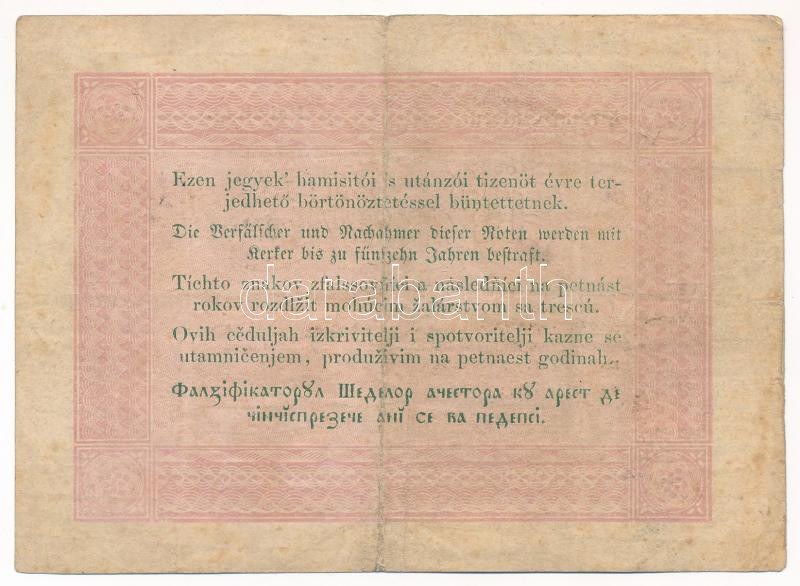 Ezen jegyek' hamisitói 's utánzói tizenöt évre ter-
jedhető börtönöztetéssel büntettetnek.
Die Verfälscher und Nachahmer dieser Noten werden mit
Kerker bis zu fünfzehn Jahren bestraft.
Tíchto znakov zfalssovňici a následňíci na petnást
rokov rozdlžit mohúcim žalárstvom sa trescú.
darabanth
Ovih cěduljah izkrivitelji i spotvoritelji kazne se
utamničenjem, produživim na petnaest godinah.
Фалꙁіфікаторꙋл Шеделор ачестора кꙋ арест де
чінчіспреꙁече ані се ва педепсі.